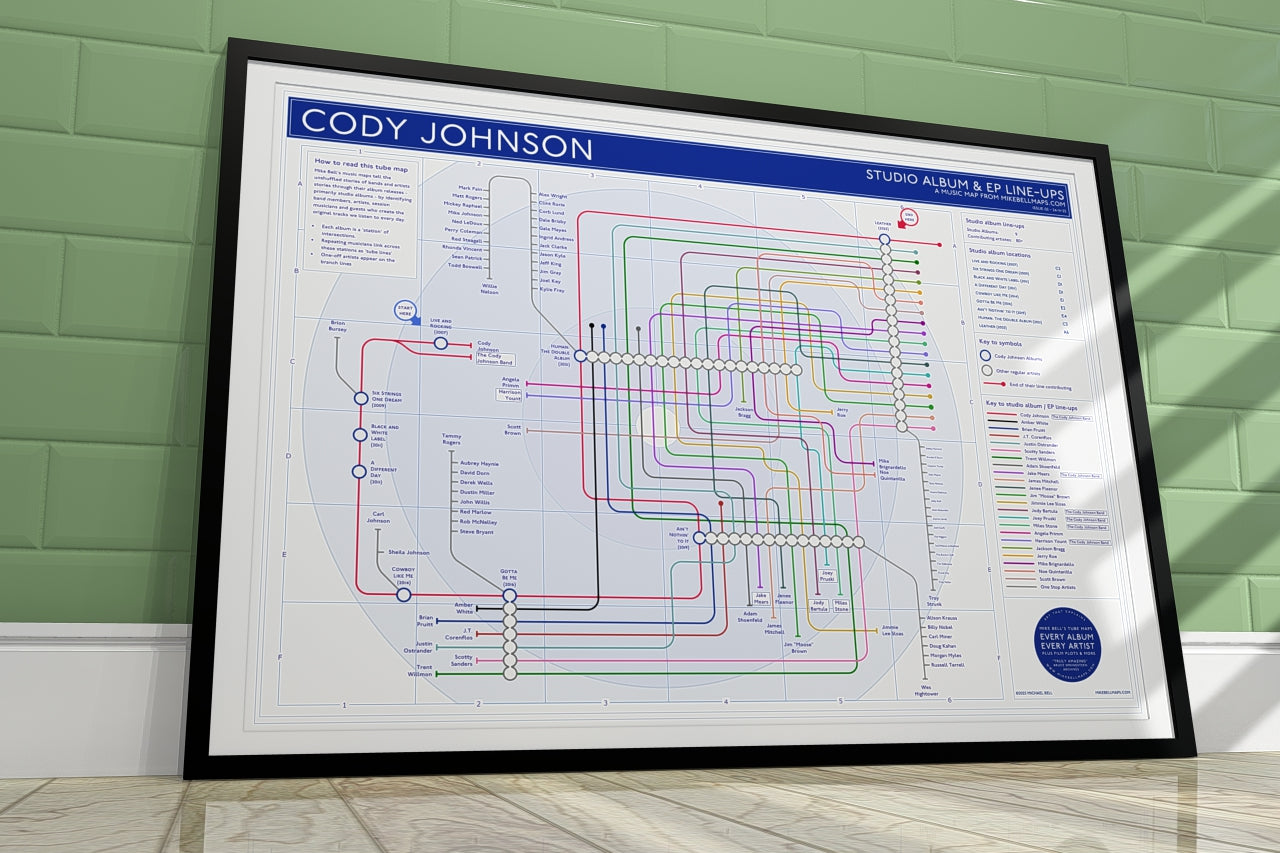 CODY JOHNSON
STUDIO ALBUM & EP LINE-UPS
A MUSIC MAP FROM MIKEBELLMAPS.COM
How to read this tube map
Mike Bell's music maps tell the
unshuffled stories of bands and artists
stories through their album releases -
primarily studio albums - by identifying
band members, artists, session
musicians and guests who create the
original tracks we listen to every day.
• Each album is a 'station' of
intersections.
• Repeating musicians link across
these stations as 'tube lines'
• One-off artists appear on the
branch lines
1
2
3
4
5
A
B
C
D
E
F
Mark Pain
Matt Rogers
Mickey Raphael
Mike Johnson
Ned LeDoux
Perry Coleman
Red Steagall
Rhonda Vincent
Sean Patrick
Todd Boswell
Willie
Nelson
Alex Wright
Cline Rorie
Corb Lund
Dale Brisby
Gale Mayes
Ingrid Andress
Jack Clarke
Jason Kyle
Jeff King
Jim Gray
Joel Key
Kylie Frey
START
HERE
Brian
Bursey
LIVE AND
ROCKING
(2007)
Cody
Johnson
The Cody
Johnson Band
SIX STRINGS
ONE DREAM
(2009)
BLACK AND
WHITE
LABEL
(2011)
A
DIFFERENT
DAY
(2011)
Carl
Johnson
Sheila Johnson
COWBOY
LIKE ME
(2014)
Tammy
Rogers
Aubrey Haynie
David Dorn
Derek Wells
Dustin Miller
John Willis
Red Marlow
Rob McNelley
Steve Bryant
GOTTA
BE ME
(2016)
Amber
White
Brian
Pruitt
J.T.
Corenflos
Justin
Ostrander
Scotty
Sanders
Trent
Willmon
HUMAN
THE DOUBLE
ALBUM
(2021)
Angela
Primm
Harrison
Yount
Scott
Brown
Jackson
Bragg
Jerry
Roe
Mike
Brignardello
Noe
Quintanilla
AIN'T
NOTHIN'
TO IT
(2019)
Adam
Shoenfeld
Jake
Mears
James
Mitchell
Jenee
Fleenor
Jim "Moose"
Brown
Jody
Bartula
Joey
Pruski
Miles
Stone
Jimmie
Lee Sloas
LEATHER
(2023)
END
HERE
Troy
Strunk
Alison Krauss
Billy Nobel
Carl Miner
Doug Kahan
Morgan Myles
Russell Terrell
Wes
Hightower
Studio album line-ups
Studio Albums: 9
Contributing artists: 80+
Studio album locations
LIVE AND ROCKING (2007)
SIX STRINGS ONE DREAM (2009)
BLACK AND WHITE LABEL (2011)
A DIFFERENT DAY (2011)
COWBOY LIKE ME (2014)
GOTTA BE ME (2016)
AIN'T NOTHIN' TO IT (2019)
HUMAN: THE DOUBLE ALBUM (2021)
LEATHER (2023)
Key to symbols
Cody Johnson Albums
Other regular artists
End of their line contributing
Key to studio album / EP line-ups
Cody Johnson The Cody Johnson Band
Amber White
Brian Pruitt
J.T. Corenflos
Justin Ostrander
Scotty Sanders
Trent Willmon
Adam Shoenfeld
Jake Mears The Cody Johnson Band
James Mitchell
Jenee Fleenor
Jim "Moose" Brown
Jimmie Lee Sloas
Jody Bartula The Cody Johnson Band
Joey Pruski The Cody Johnson Band
Miles Stone The Cody Johnson Band
Angela Primm
Harrison Yount The Cody Johnson Band
Jackson Bragg
Jerry Roe
Mike Brignardello
Noe Quintanilla
Scott Brown
One Stop Artists
MIKE BELL'S TUBE MAPS
EVERY ALBUM
EVERY ARTIST
PLUS FILM PLOTS & MORE
"TRULY AMAZING"
BRUCE SPRINGSTEEN
ARCHIVES
©2023 MICHAEL BELL
MIKEBELLMAPS.COM
1
2
3
4
5
6